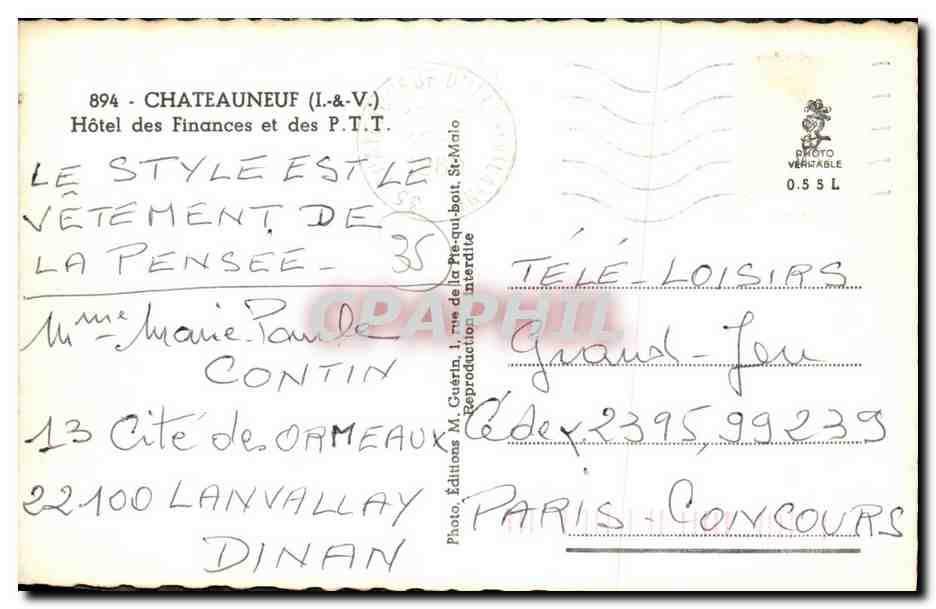 894 - CHATEAUNEUF (I.-&-V.)
Hôtel des Finances et des P.T.T.
LE STYLE EST LE
VÊTEMENT DE
LA PENSEE_ 35
Mme Marie-Paule
CONTIN
13 Cité des ORMEAUX
22100 LANVALLAY
DINAN
Photo. Éditions M. Guérin, 1, rue de la Pie-qui-boit, St-Malo
Reproduction interdite
PHOTO
VÉRITABLE
0.5 5 L
TÉLÉ-LOISIRS
Grand-Jeu
Cédex 2395, 99239
PARIS-CONCOURS
CPAPHIL